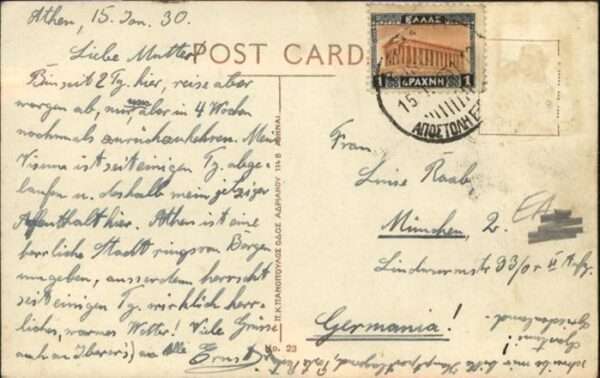 Athen, 15. Jan. 30.
Liebe Mutter!
Bin seit 2 Tg. hier, reise aber
morgen ab, nur um aber in 4 Wochen
nochmals zurückzukehren. Mein
Visum ist seit einigen Tg. abge-
laufen u. deshalb mein jetziger
Aufenthalt hier. Athen ist eine
herrliche Stadt rings von Bergen
umgeben, ausserdem herrscht
seit einigen Tg. wirklich herr-
liches, warmes Wetter! Viele Grüsse
auch an alle Ernst
POST CARD
ΕΛΛΑΣ
1 ΔΡΑΧΜΗ 1
15
ΑΠΟΣΤΟΛΗ
Π.Κ.ΠΑΝΟΠΟΥΛΟΣ ΟΔΟΣ ΑΔΡΙΑΝΟΥ 114 Β ΑΘΗΝΑΙ
No. 23
Frau
Luise Raab
München, 2.
Lindwurmstr 33/0 r II Aufg.
Germania!
schreibe mir bitte Hauptpostlagernd, Poste Restante
Griechenland.